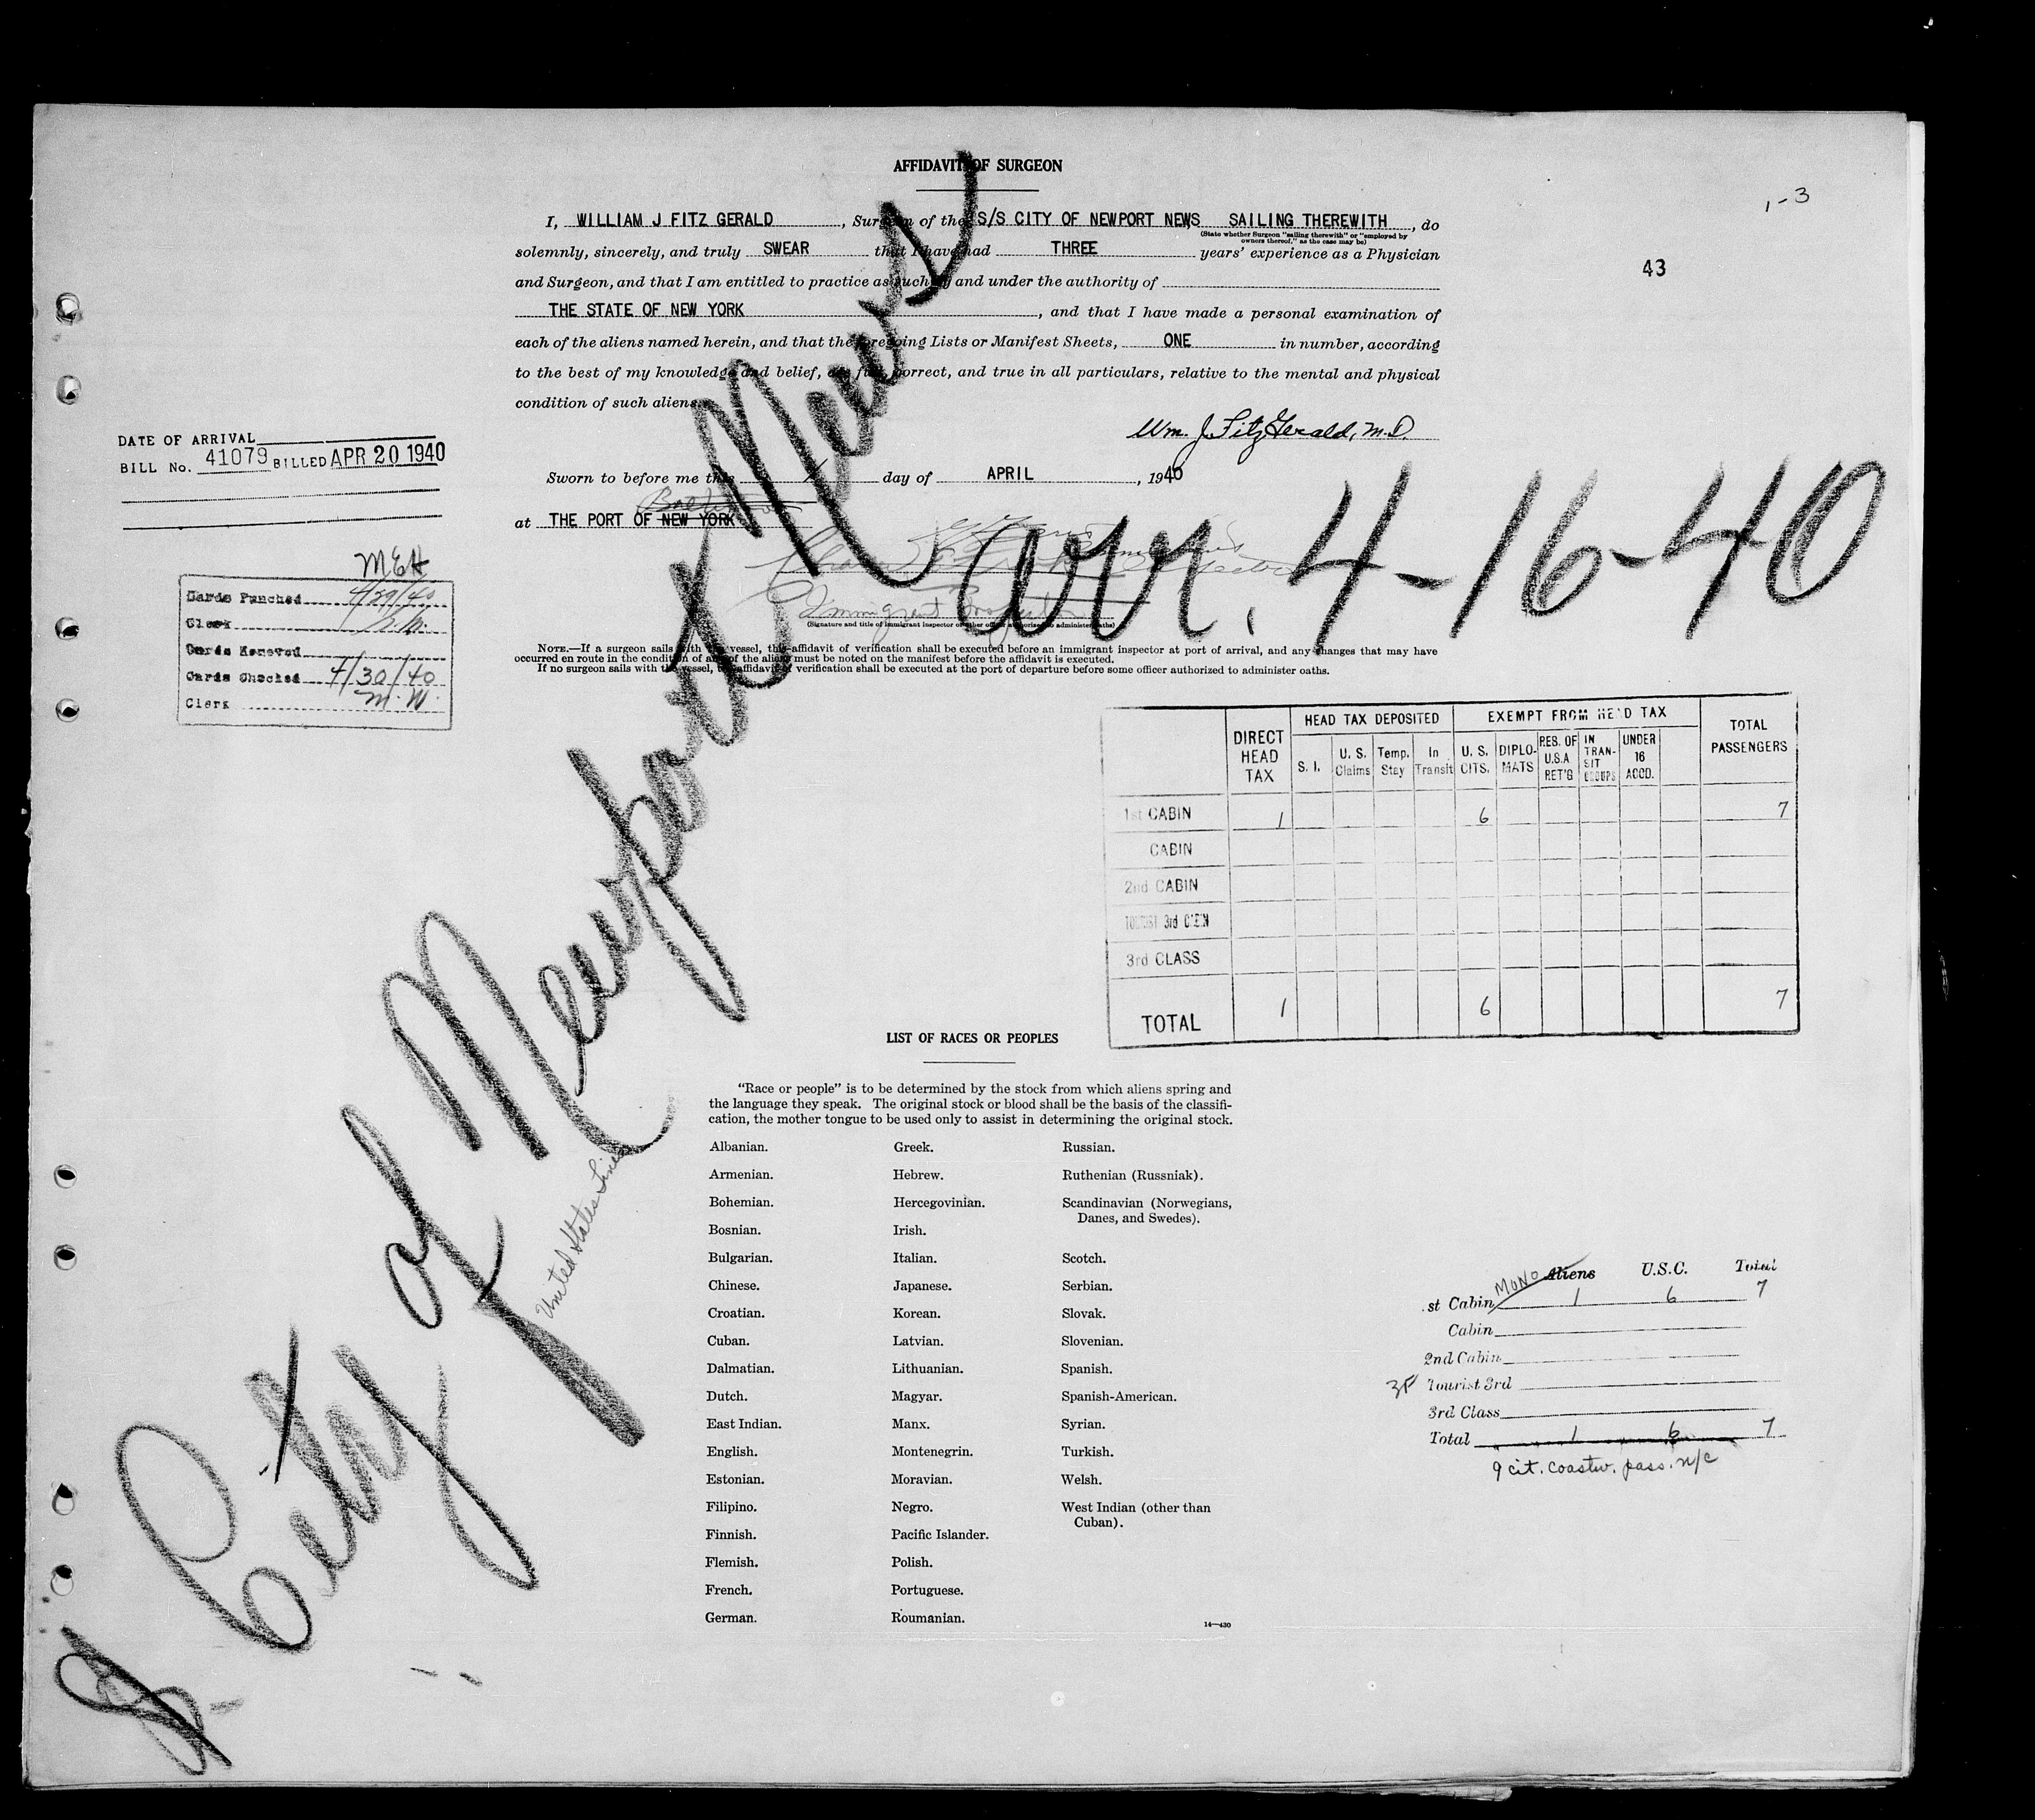 AFFIDAVIT OF SURGEON
1-3
I, WILLIAM J FITZ GERALD, Surgeon of the S/S CITY OF NEWPORT NEWS SAILING THEREWITH, do
(State whether Surgeon "sailing therewith" or "employed by
owners thereof," as the case may be)
solemnly, sincerely, and truly SWEAR that I have had THREE years' experience as a Physician
43
and Surgeon, and that I am entitled to practice as such by and under the authority of
THE STATE OF NEW YORK, and that I have made a personal examination of
each of the aliens named herein, and that the foregoing Lists or Manifest Sheets, ONE in number, according
to the best of my knowledge and belief, are full, correct, and true in all particulars, relative to the mental and physical
condition of such aliens.
Wm. J. FitzGerald, M.D.
DATE OF ARRIVAL
BILL No. 41079 BILLED APR 20 1940
Sworn to before me this day of APRIL, 1940
at THE PORT OF NEW YORK
Immigrant Inspector
(Signature and title of immigrant inspector or other officer authorized to administer oaths)
S. S. City of Newport News arr. 4-16-40
United States Lines
MEH
Cards Punched 4/29/40
Clerk
Cards Removed
Cards Checked 4/30/40
Clerk M.W.
NOTE.—If a surgeon sails with the vessel, this affidavit of verification shall be executed before an immigrant inspector at port of arrival, and any changes that may have
occurred en route in the condition of any of the aliens must be noted on the manifest before the affidavit is executed.
If no surgeon sails with the vessel, the affidavit of verification shall be executed at the port of departure before some officer authorized to administer oaths.
DIRECT HEAD TAX HEAD TAX DEPOSITED EXEMPT FROM HEAD TAX TOTAL PASSENGERS
S. I. U. S. Claims Temp. Stay In Transit U. S. CITS. DIPLOMATS RES. OF U.S.A RET'G IN TRANSIT GROUPS UNDER 16 ACCD.
1st CABIN 1 6 7
CABIN
2nd CABIN
TOURIST 3rd CABIN
3rd CLASS
TOTAL 1 6 7
LIST OF RACES OR PEOPLES
"Race or people" is to be determined by the stock from which aliens spring and
the language they speak. The original stock or blood shall be the basis of the classifi-
cation, the mother tongue to be used only to assist in determining the original stock.
Albanian.
Armenian.
Bohemian.
Bosnian.
Bulgarian.
Chinese.
Croatian.
Cuban.
Dalmatian.
Dutch.
East Indian.
English.
Estonian.
Filipino.
Finnish.
Flemish.
French.
German.
Greek.
Hebrew.
Hercegovinian.
Irish.
Italian.
Japanese.
Korean.
Latvian.
Lithuanian.
Magyar.
Manx.
Montenegrin.
Moravian.
Negro.
Pacific Islander.
Polish.
Portuguese.
Roumanian.
Russian.
Ruthenian (Russniak).
Scandinavian (Norwegians,
Danes, and Swedes).
Scotch.
Serbian.
Slovak.
Slovenian.
Spanish.
Spanish-American.
Syrian.
Turkish.
Welsh.
West Indian (other than
Cuban).
14—430
MONO Aliens U.S.C. Total
st Cabin 1 6 7
Cabin
2nd Cabin
Tourist 3rd
3rd Class
Total 1 6 7
9 cit. coastw. pass. n/c